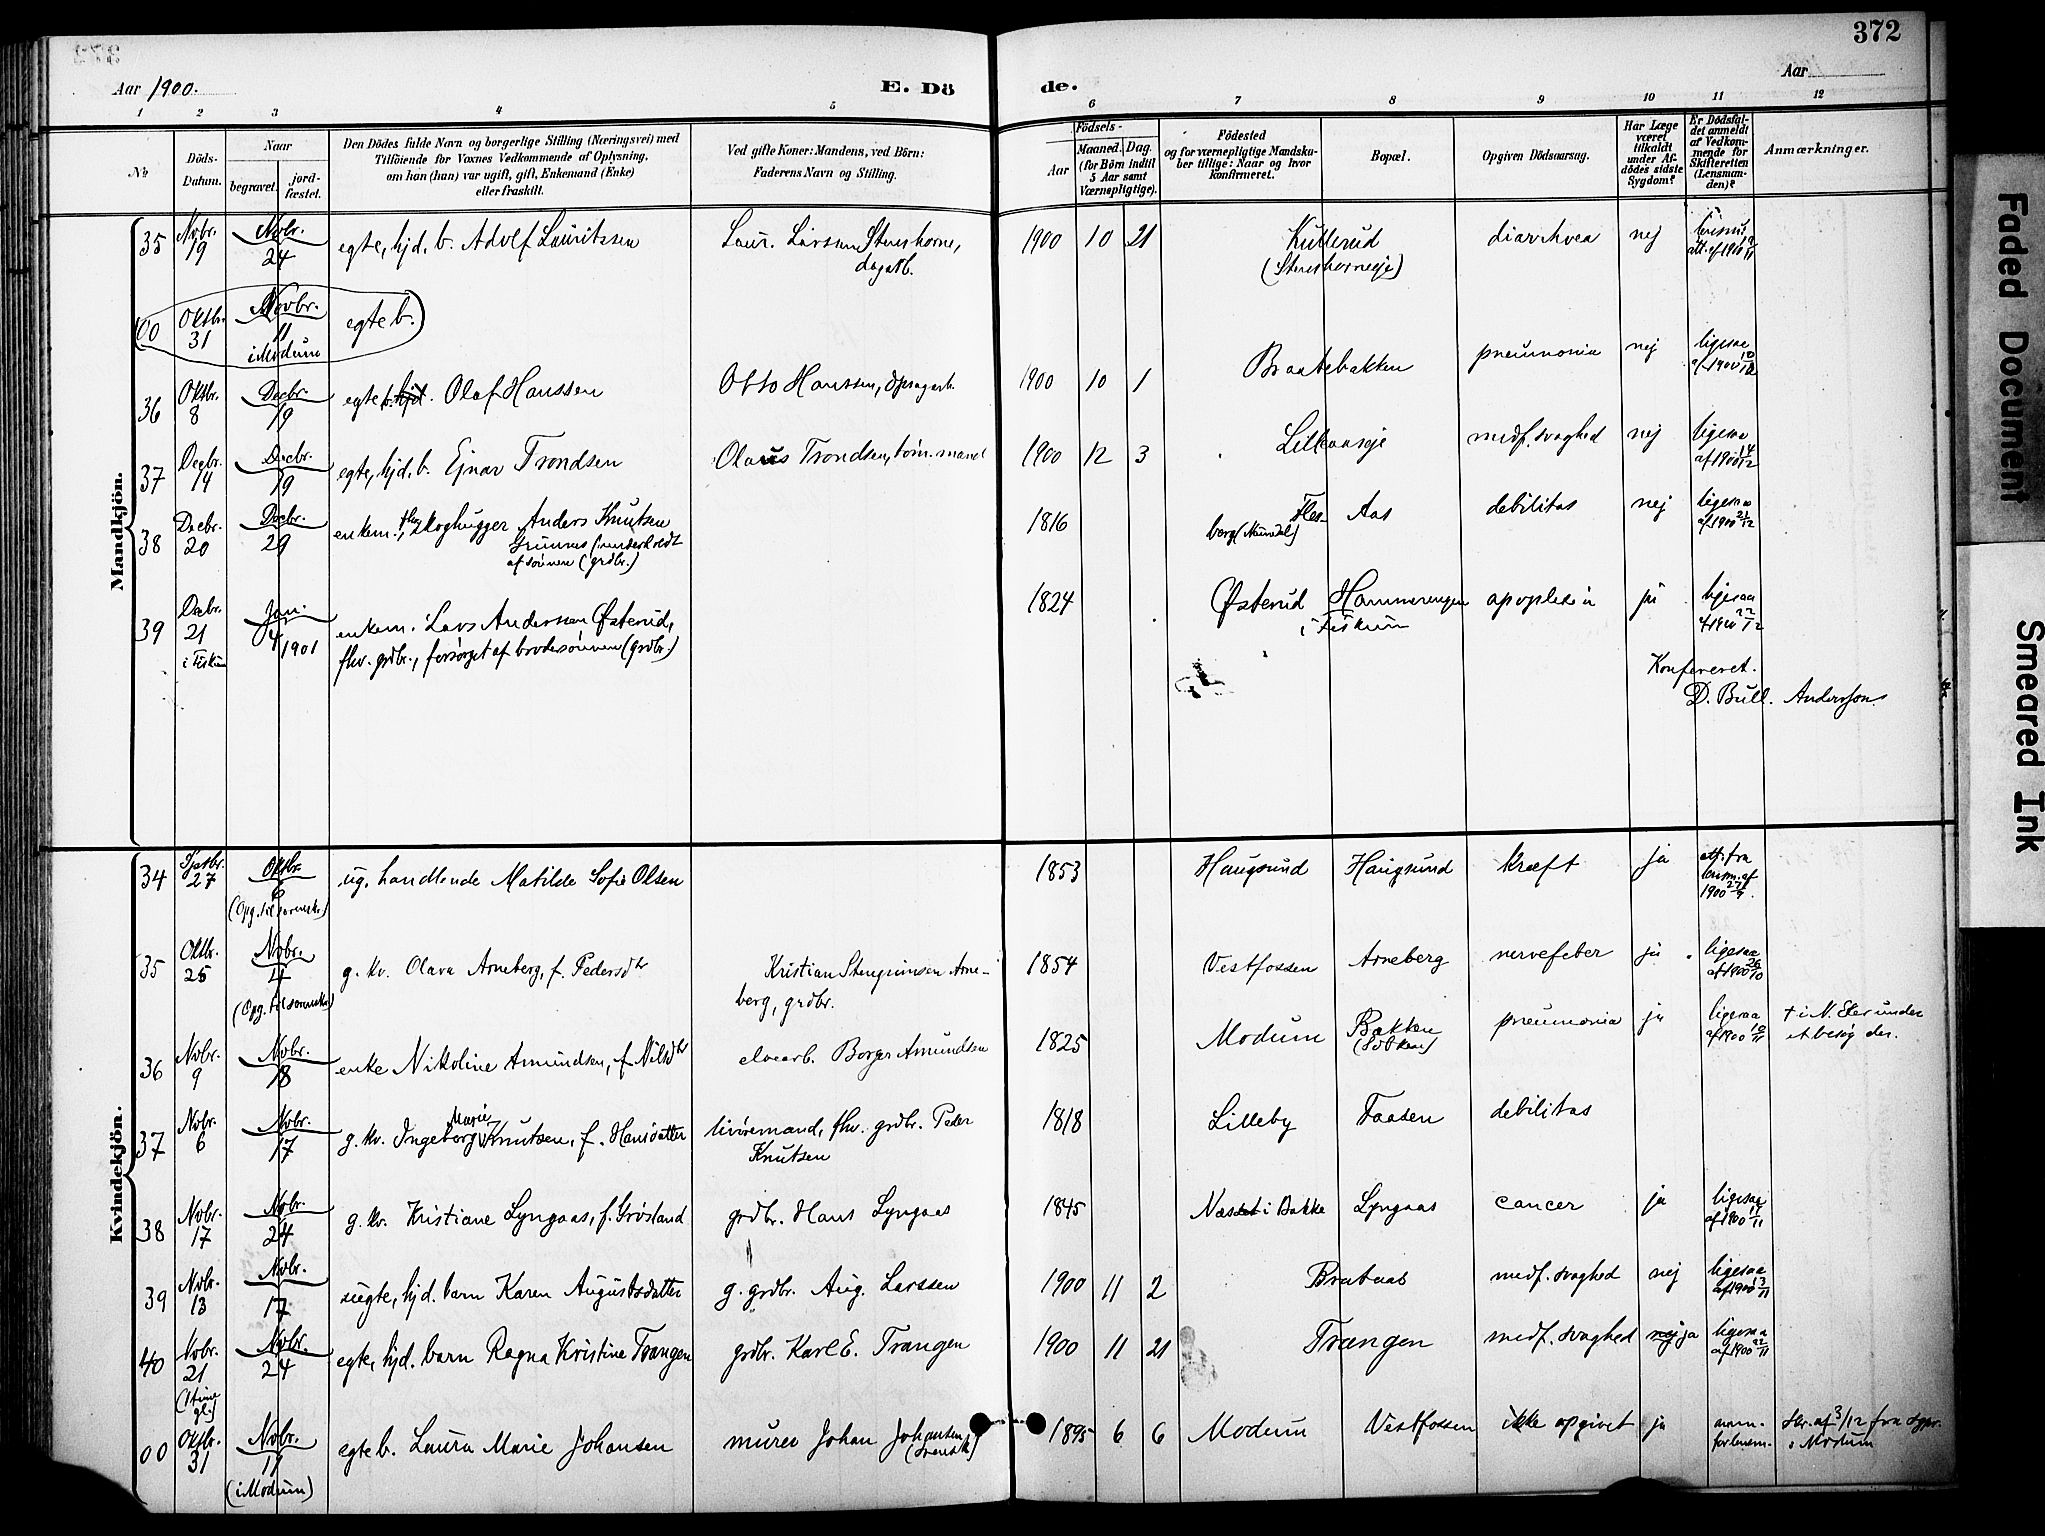 372
Aar 1900.
E. Dö
de.
Aar
1 2 3 4 5 6 7 8 9 10 11 12
No
Döds-Datum.
Naar
begravet.
jord-fæstet.
Den Dödes fulde Navn og borgerlige Stilling (Næringsvei) med
Tilföiende for Voxnes Vedkommende af Oplysning,
om han (hun) var ugift, gift, Enkemand (Enke)
eller fraskilt.
Ved gifte Koner: Mandens, ved Börn:
Faderens Navn og Stilling.
Födsels-
Aar
Maaned.
Dag.
(for Börn indtil
5 Aar samt
Værnepligtige).
Födested
og for værnepligtige Mandska-
ber tillige: Naar og hvor
konfirmeret.
Bopæl.
Opgiven Dödsaarsag.
Har Læge
været
tilkaldt
under Af-
dödes sidste
Sygdom?
Er Dödsfal-
det anmeldt
af Vedkom-
mende for
Skifteretten
(Lensman-
den)?
Anmærkninger.
Mandkjön.
35 Novbr. 19 Novbr. 24 egte, hjd. b. Adolf Lauritssen Laur. Larsen Stenshorne, dagarb. 1900 10 21 Kullerud (Stenshorneeje) diarrhoea nej
00 Oktbr. 31 Novbr. 11 i Modum egte b.
36 Oktbr. 8 Decbr. 19 egte b. Olaf Hanssen Otto Hanssen, 1900 10 1 Braatebakken pneumonia nej ligesaa af 1900 10/12
37 Decbr. 14 Decbr. 19 egte, hjd. b. Ejnar Trondsen Olaus Trondsen, tøm.mand 1900 12 3 Lilleaaseje medf. svaghed nej ligesaa af 1900 14/12
38 Decbr. 20 Decbr. 29 enkem., fhv. skoghugger Anders Knutsen Grunnes (underholdt af sønnen (grdbr.) 1816 Flesberg (Numedal) Aas debilitas nej ligesaa af 1900 21/12
39 Decbr. 21 i Fiskum Jan. 4 1901 enkem. Lars Anderssen Østerud, fhv. grdbr., forsørget af brodersønnen (grdbr.) 1824 Østerud Hammerengen i Fiskum apoplexia ja ligesaa af 1900 22/12
Konfereret.
D. Bull. Anderssen
Kvindekjön.
34 27 Oktbr. 6 ug. handlende Matilde Sofie Olsen 1853 Haugsund Haugsund kræft ja att. fra lensm. af 1900 27/9.
35 Oktbr. 25 Novbr. 4 g. kv. Olava Arneberg, f. Pedersdtr Kristian Stengrimsen Arneberg, grdbr. 1854 Vestfossen Arneberg nervefeber ja ligesaa af 1900 26/10
36 Novbr. 9 Novbr. 18 enke Nikoline Amundsen, f. Nilsdtr elvearb. Borger Amundsen 1825 Modum Bakken pneumonia ja ligesaa af 1900 10/11 † i N. Eker under et besøg der.
37 Novbr. 6 Novbr. 17 g. kv. Ingeborg Marie Knutsen, f. Hansdatter livøremand, fhv. grdbr. Peder Knutsen 1818 Lilleby Faasen debilitas
38 Novbr. 17 Novbr. 24 g. kv. Kristiane Lyngaas, f. Grøsland grdbr. Hans Lyngaas 1845 Næstet i Bakke Lyngaas cancer ja ligesaa af 1900 17/11
39 Novbr. 13 Novbr. 17 uegte, hjd. barn Karen Augustsdatter g. grdbr. Aug. Larssen 1900 11 2 Brataas medf. svaghed nej ligesaa af 1900 13/11
40 Novbr. 21 (1 time gl.) Novbr. 24 egte, hjd. barn Ragna Kristine Trangen grdbr. Karl E. Trangen 1900 11 21 Trangen medf. svaghed nej ja ligesaa af 1900 22/11
00 Oktbr. 31 Novbr. 11 (i Modum) egte b. Laura Marie Johansen murer Johan Johansen (svensk) 1895 6 6 Modum Vestfossen ikke opgivet ja anm. for lensm. Skr. af 3/12 fra sgpr. i Modum
Faded Document
Smeared Ink